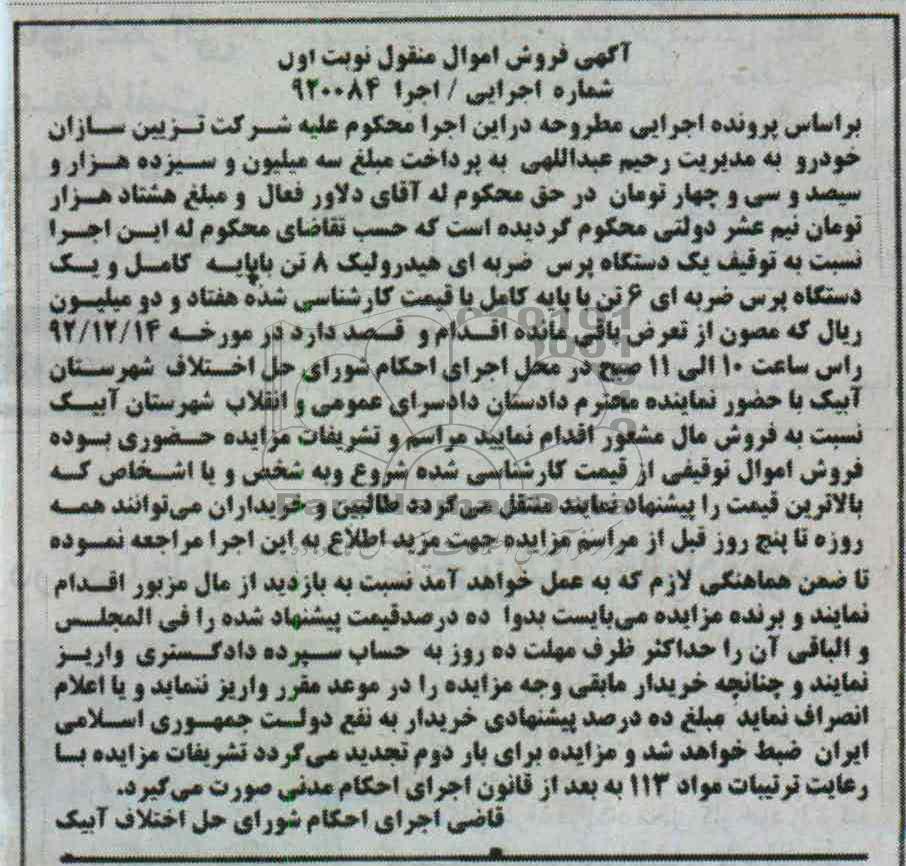 آگهی فروش اموال منقول نوبت اول
شماره اجرایی / اجرا ۹۲۰۰۸۴
براساس پرونده اجرایی مطروحه دراین اجرا محکوم علیه شرکت تزیین سازان
خودرو به مدیریت رحیم عبداللهی به پرداخت مبلغ سه میلیون و سیزده هزار و
سیصد و سی و چهار تومان در حق محکوم له آقای دلاور فعال و مبلغ هشتاد هزار
تومان نیم عشر دولتی محکوم گردیده است که حسب تقاضای محکوم له این اجرا
نسبت به توقیف یک دستگاه پرس ضربه ای هیدرولیک ۸ تن باپایه کامل و یک
دستگاه پرس ضربه ای ۶ تن با پایه کامل با قیمت کارشناسی شده هفتاد و دو میلیون
ریال که مصون از تعرض باقی مانده اقدام و قصد دارد در مورخه ۹۲/۱۲/۱۴
راس ساعت ۱۰ الی ۱۱ صبح در محل اجرای احکام شورای حل اختلاف شهرستان
آبیک با حضور نماینده محترم دادستان دادسرای عمومی و انقلاب شهرستان آبیک
نسبت به فروش مال مشعور اقدام نمایید مراسم و تشریفات مزایده حضوری بوده
فروش اموال توقیفی از قیمت کارشناسی شده شروع وبه شخص و یا اشخاص که
بالاترین قیمت را پیشنهاد نمایند منتقل می‌گردد طالبین و خریداران می‌توانند همه
روزه تا پنج روز قبل از مراسم مزایده جهت مزید اطلاع به این اجرا مراجعه نموده
تا ضمن هماهنگی لازم که به عمل خواهد آمد نسبت به بازدید از مال مزبور اقدام
نمایند و برنده مزایده می‌بایست بدوا ده درصدقیمت پیشنهاد شده را فی المجلس
و الباقی آن را حداکثر ظرف مهلت ده روز به حساب سپرده دادگستری واریز
نمایند و چنانچه خریدار مابقی وجه مزایده را در موعد مقرر واریز ننماید و یا اعلام
انصراف نماید مبلغ ده درصد پیشنهادی خریدار به نفع دولت جمهوری اسلامی
ایران ضبط خواهد شد و مزایده برای بار دوم تجدید می‌گردد تشریفات مزایده با
رعایت ترتیبات مواد ۱۱۳ به بعد از قانون اجرای احکام مدنی صورت می‌گیرد.
قاضی اجرای احکام شورای حل اختلاف آبیک